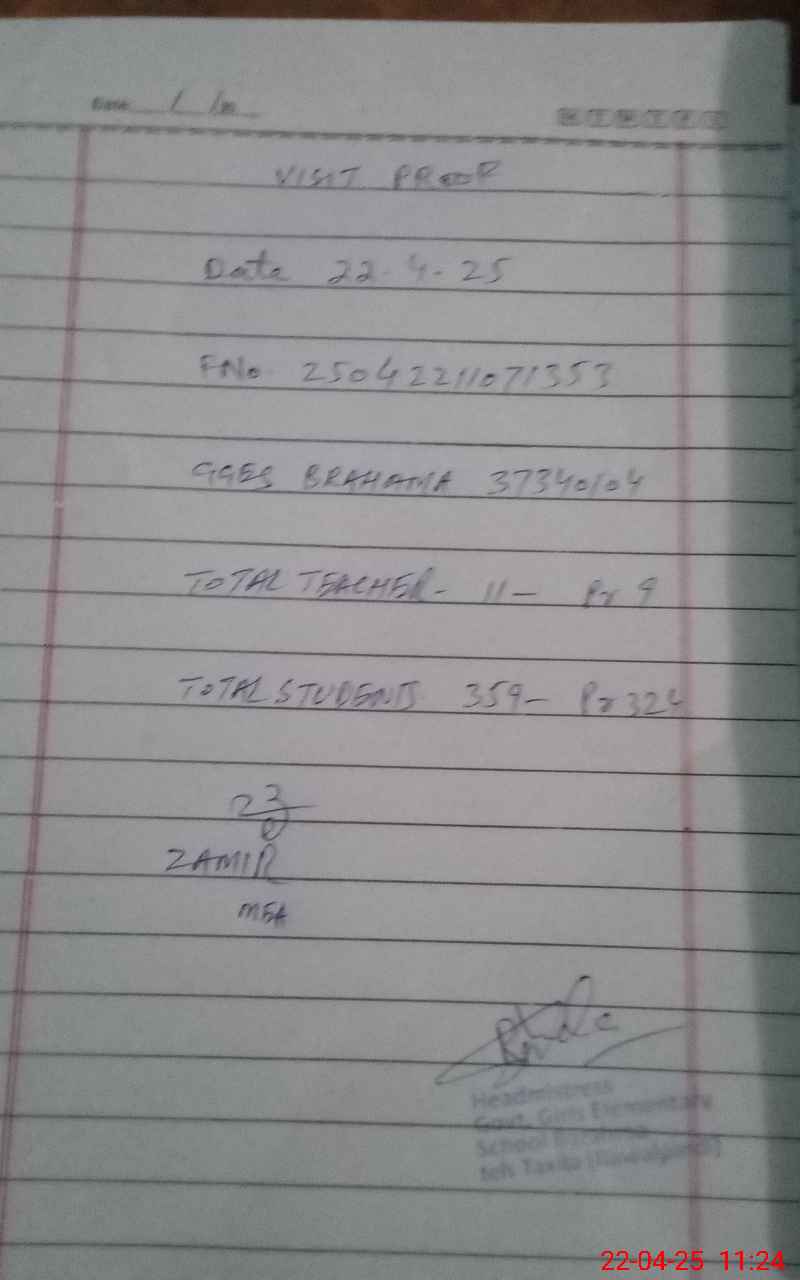 Date / /20
VISIT PROOF
Date 22-4-25
FNo. 25042211071353
GGES BRAHAMA 37340104
TOTAL TEACHER - 11 - Pr 9
TOTAL STUDENTS 359 - Pr 324
23
ZAMIR
MEA
Headmistress
Govt. Girls Elementary
School
teh Taxila (Rawalpindi)
22-04-25 11:24